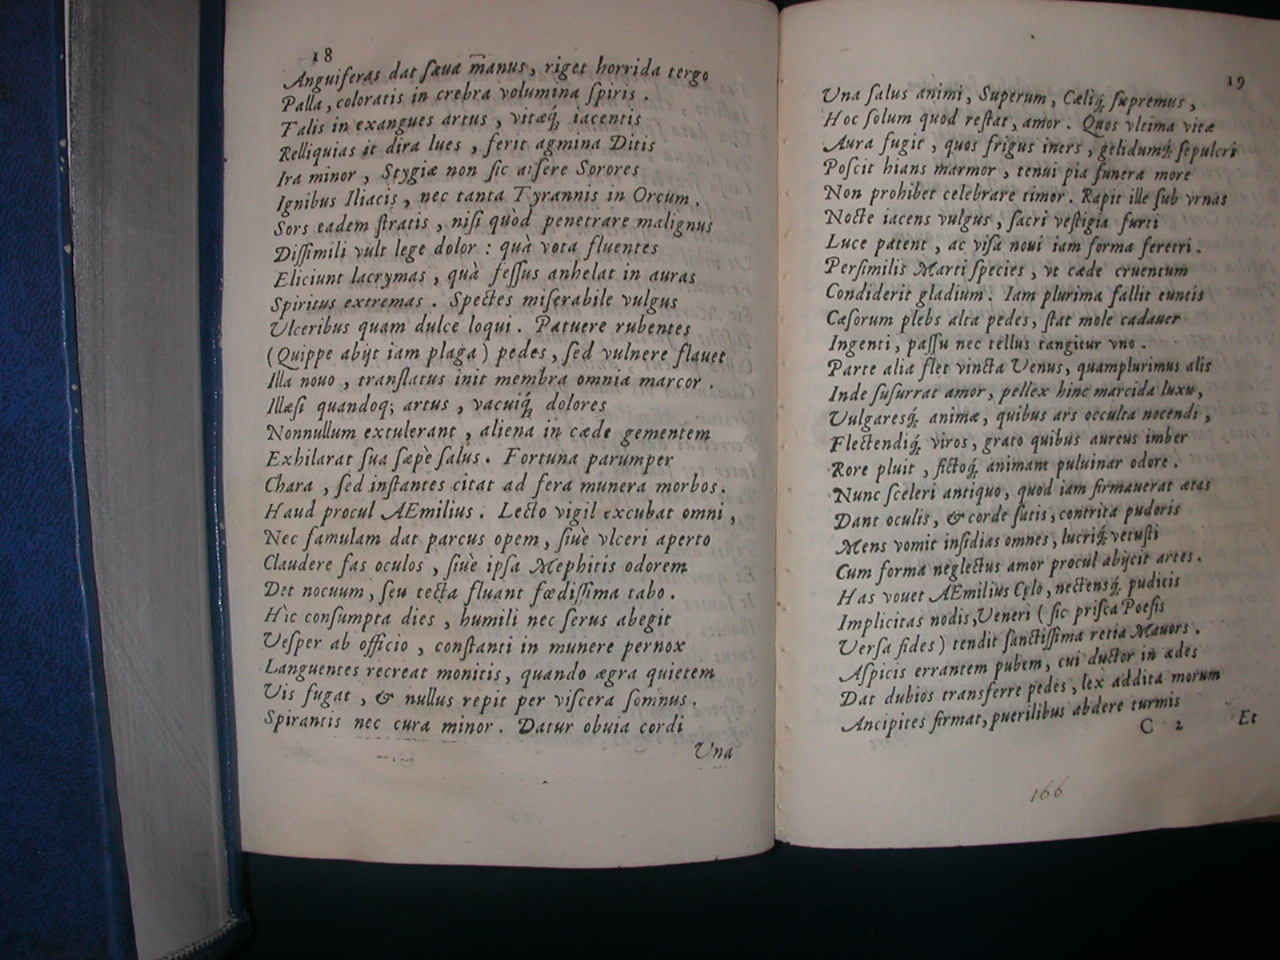 18
Anguiferas dat ſæua m̄anus, riget horrida tergo
Palla, coloratis in crebra volumina ſpiris.
Talis in exangues artus, vitæq́; iacentis
Relliquias it dira lues, ferit agmina Ditis
Ira minor, Stygiæ non ſic arſere Sorores
Ignibus Iliacis, nec tanta Tyrannis in Orcum.
Sors eadem ſtratis, niſi quòd penetrare malignus
Diſſimili vult lege dolor: quà vota fluentes
Eliciunt lacrymas, quà feſſus anhelat in auras
Spiritus extremas. Spectes miſerabile vulgus
Ulceribus quam dulce loqui. Patuere rubentes
(Quippe abijt iam plaga) pedes, ſed vulnere flauet
Illa nouo, tranſlatus init membra omnia marcor.
Illæſi quandoq; artus, vacuiq́; dolores
Nonnullum extulerant, aliena in cæde gementem
Exhilarat ſua ſæpè ſalus. Fortuna parumper
Chara, ſed inſtantes citat ad fera munera morbos.
Haud procul AEmilius. Lecto vigil excubat omni,
Nec famulam dat parcus opem, ſiuè vlceri aperto
Claudere fas oculos, ſiuè ipſa Mephitis odorem
Det nocuum, ſeu tecta fluant fœdiſſima tabo.
Hìc conſumpta dies, humili nec ſerus abegit
Ueſper ab officio, conſtanti in munere pernox
Languentes recreat monitis, quando ægra quietem
Uis fugat, & nullus repit per viſcera ſomnus.
Spirantis nec cura minor. Datur obuia cordi
Una
19
Una ſalus animi, Superum, Cæliq́; ſupremus,
Hoc ſolum quod reſtat, amor. Quos vltima vitæ
Aura fugit, quos frigus iners, gelidumq́; ſepulcri
Poſcit hians marmor, tenui pia funera more
Non prohibet celebrare timor. Rapit ille ſub vrnas
Nocte iacens vulgus, ſacri veſtigia furti
Luce patent, ac viſa noui iam forma feretri.
Perſimilis Marti ſpecies, vt cæde cruentum
Condiderit gladium. Iam plurima fallit euntis
Cæſorum plebs alta pedes, ſtat mole cadauer
Ingenti, paſſu nec tellus tangitur vno.
Parte alia flet vincta Uenus, quamplurimus alis
Inde ſuſurrat amor, pellex hinc marcida luxu,
Uulgaresq́; animæ, quibus ars occulta nocendi,
Flectendiq́; viros, grato quibus aureus imber
Rore pluit, fictoq́; animant puluinar odore.
Nunc ſceleri antiquo, quod iam firmauerat ætas
Dant oculis, & corde ſatis, contrita pudoris
Mens vomit inſidias omnes, lucriq́; vetuſti
Cum forma neglectus amor procul abijcit artes.
Has vouet AEmilius Cęlo, nectensq́; pudicis
Implicitas nodis, Ueneri (ſic priſca Poeſis
Verſa fides) tendit ſanctiſſima retia Mauors.
Aſpicis errantem pubem, cui ductor in ædes
Dat dubios transferre pedes, lex addita morum
Ancipites firmat, puerilibus abdere turmis
C 2
Et
166